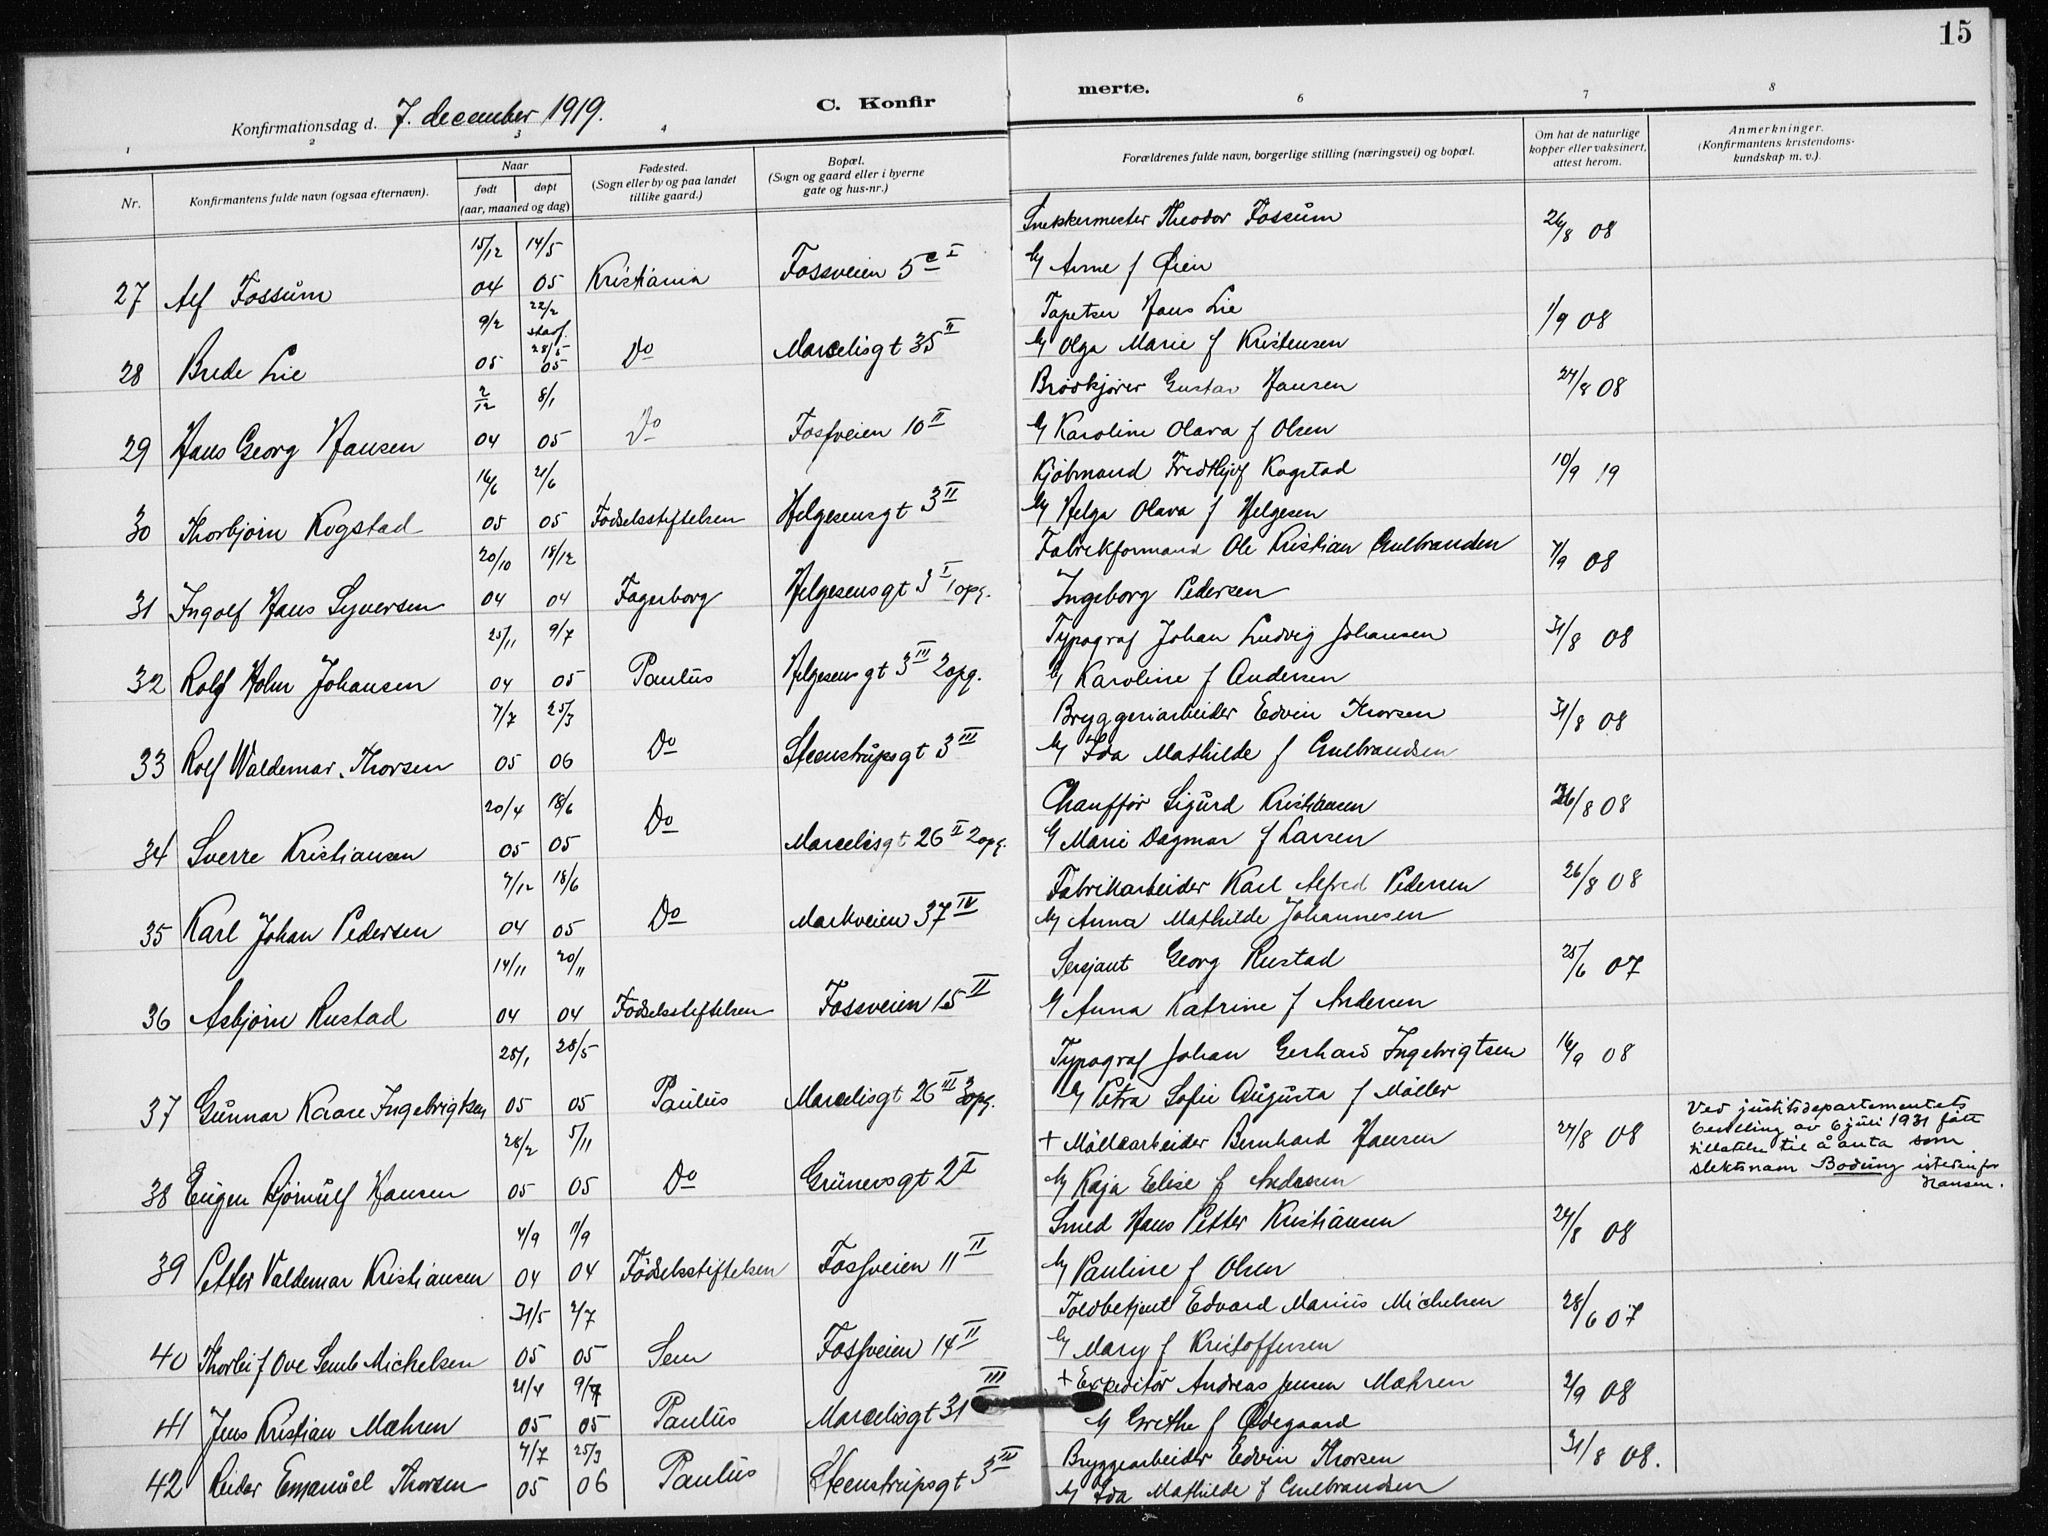 15
C. Konfir merte.
Konfirmationsdag d. 7. december 1919.
1 2 3 4 6 7 8
Nr.
Konfirmantens fulde navn (ogsaa efternavn).
Naar
født døpt
(aar, maaned og dag)
Fødested.
(Sogn eller by og paa landet
tillike gaard.)
Bopæl.
(Sogn og gaard eller i byerne
gate og hus-nr.)
Forældrenes fulde navn, borgerlige stilling (næringsvei) og bopæl.
Om hat de naturlige
kopper eller vaksinert,
attest herom.
Anmerkninger.
(Konfirmantens kristendoms-
kundskap m. v.).
15/12 14/5 Snekkermester Theodor Fossum 26/8 08
27 Alf Fossum 04 05 Kristiania Fossveien 5 c I Anne f Øien
9/2 22/2 Tapetser Hans Lie 1/9 08
28/5
28 Brede Lie 05 05 Do Marcelisgt 35 II Olga Marie f Kristensen
2/12 8/1 Brødkjører Gustav Hansen 24/8 08
29 Hans Georg Hansen 04 05 Do Fossveien 10 II Karoline Olava f Olsen
16/6 21/6 Kjöbmand Fredthjof Kogstad 10/9 19
30 Thorbjörn Kogstad 05 05 Födselsstiftelsen Helgesensgt 3 II Helga Olava f Helgesen
20/10 18/12 Fabrikformand Ole Kristian Gulbrandsen 7/9 08
31 Ingolf Hans Syversen 04 04 Fagerborg Helgesensgt 3 I 1 opg. Ingeborg Pedersen
25/11 9/7 Typograf Johan Ludvig Johansen 31/8 08
32 Rolf Holm Johansen 04 05 Paulus Helgesensgt 3 III 2 opg. Karoline f Andersen
7/7 25/3 Bryggeriarbeider Edvin Thorsen 31/8 08
33 Rolf Waldemar Thorsen 05 06 Do Steenstrupsgt 3 III Ida Mathilde f Gulbrandsen
20/4 18/6 Chauffør Sigurd Kristiansen 26/8 08
34 Sverre Kristiansen 05 05 Do Marcelisgt 26 II 2 opg. Marie Dagmar f Larsen
7/12 18/6 Fabrikarbeider Karl Alfred Pedersen 26/8 08
35 Karl Johan Pedersen 04 05 Do Markveien 37 IV Anna Mathilde Johannesen
14/11 20/11 Sersjant Georg Rustad 25/6 07
36 Asbjørn Rustad 04 04 Födselsstiftelsen Fossveien 15 II Anna Katrine f Andersen
28/1 28/5 Typograf Johan Gerhard Ingebrigtsen 16/9 08
37 Gunnar Kaare Ingebrigtsen 05 05 Paulus Marcelisgt 26 III 3 opg. Petra Sofie Augusta f Möller
28/2 5/11 + Möllearbeider Bernhard Hansen 27/8 08
Ved justitsdepartementets
bevilling av 6 juli 1931 fått
tillatelse til å anta som
slektsnam Bodung istedenfor
Hansen.
38 Eugen Bjørnulf Hansen 05 05 Do Grünersgt 2 I Kaja Elise f Andersen
4/9 7/9 Smed Hans Petter Kristiansen 24/8 08
39 Petter Valdemar Kristiansen 04 04 Födselsstiftelsen Fossveien 11 II Pauline f Olsen
31/5 2/7 Toldbetjent Edvard Marius Michelsen 28/6 07
40 Thorleif Ove Semb Michelsen 05 05 Sem Fossveien 14 II Mary f Kristoffersen
21/4 9/7 + Expeditör Andreas Jensen Mæhren 2/9 08
41 Jens Kristian Mæhren 05 05 Paulus Marcelisgt 31 III Grethe f Ødegaard
7/7 25/3 Bryggearbeider Edvin Thorsen 31/8 08.
42 Reidar Emanuel Thorsen 05 06 Paulus Steenstrupsgt 3 III Ida Mathilde f Gulbrandsen